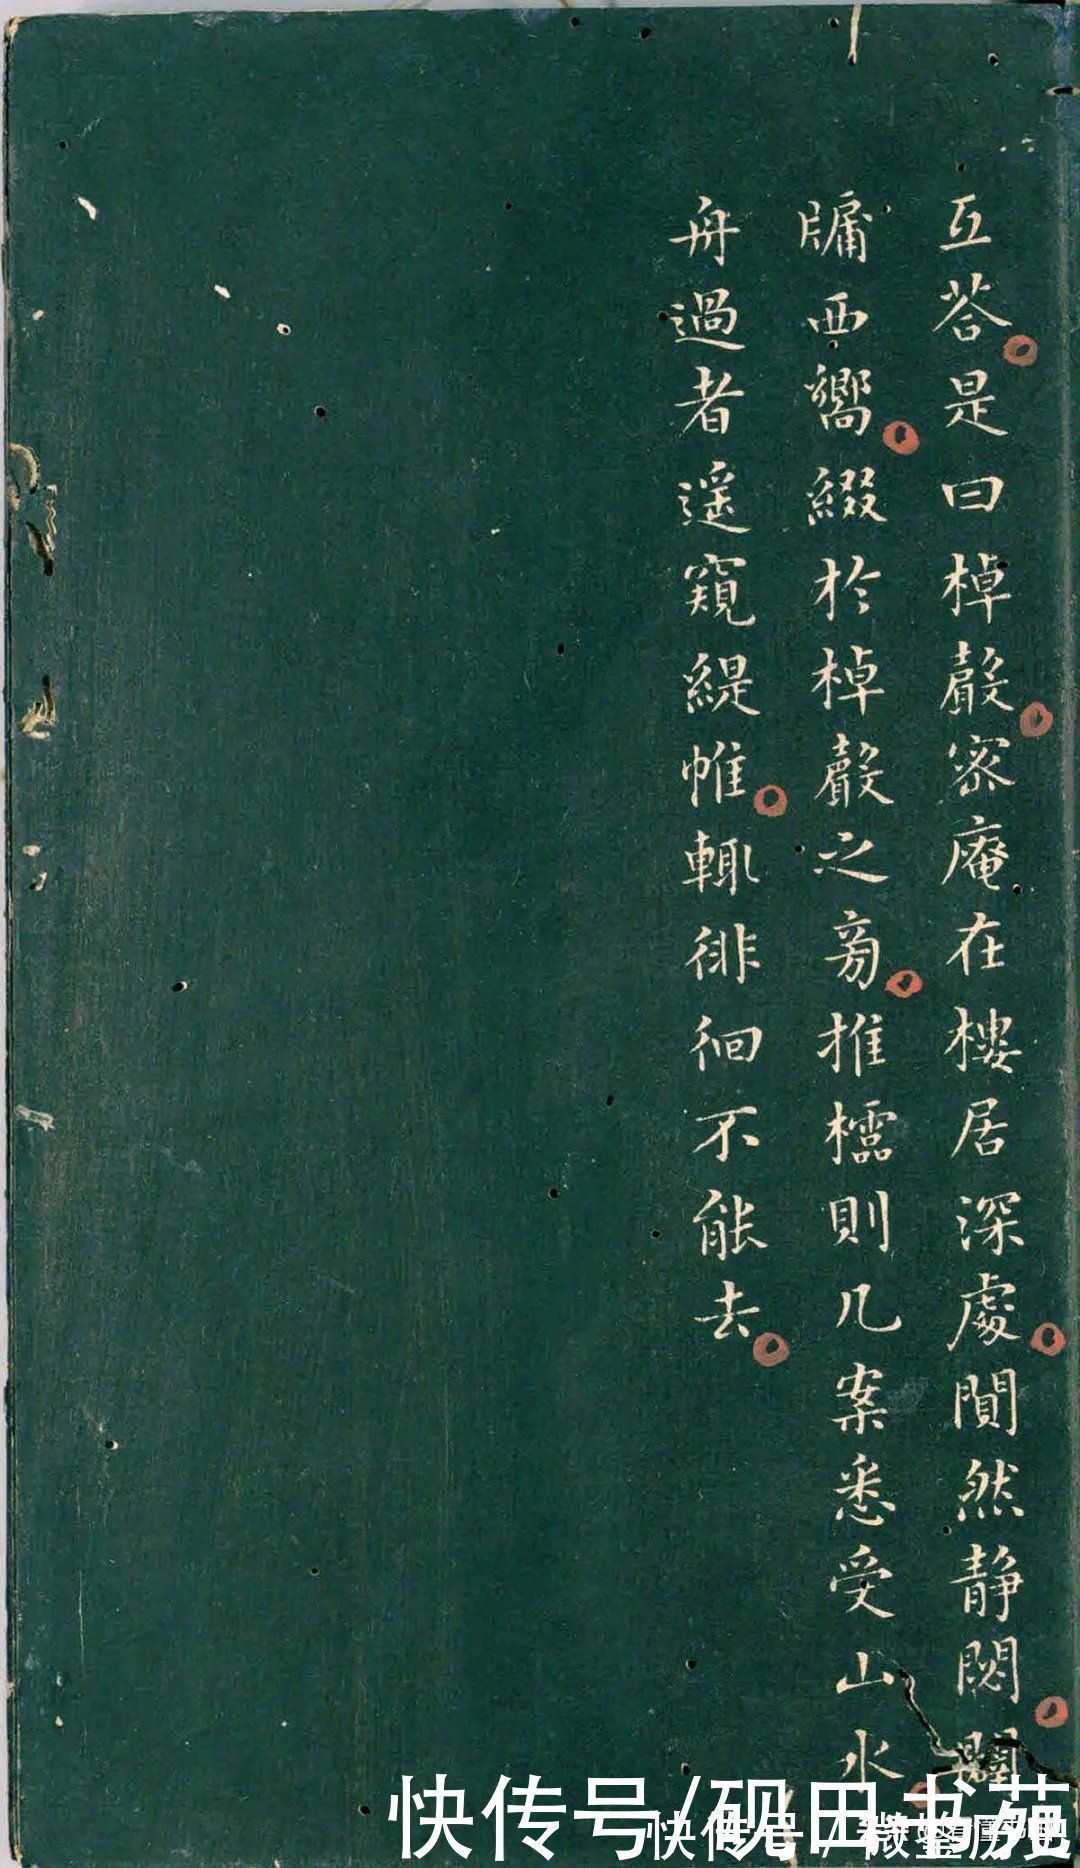 互荅是曰棹嚴密庵在樓居深處閴然静閟闢
牖西嚮綴於棹嚴之旁推櫺則几案悉受山水
舟過者遥窺緹帷輒徘徊不能去
快传号/砚田书苑
快传号/